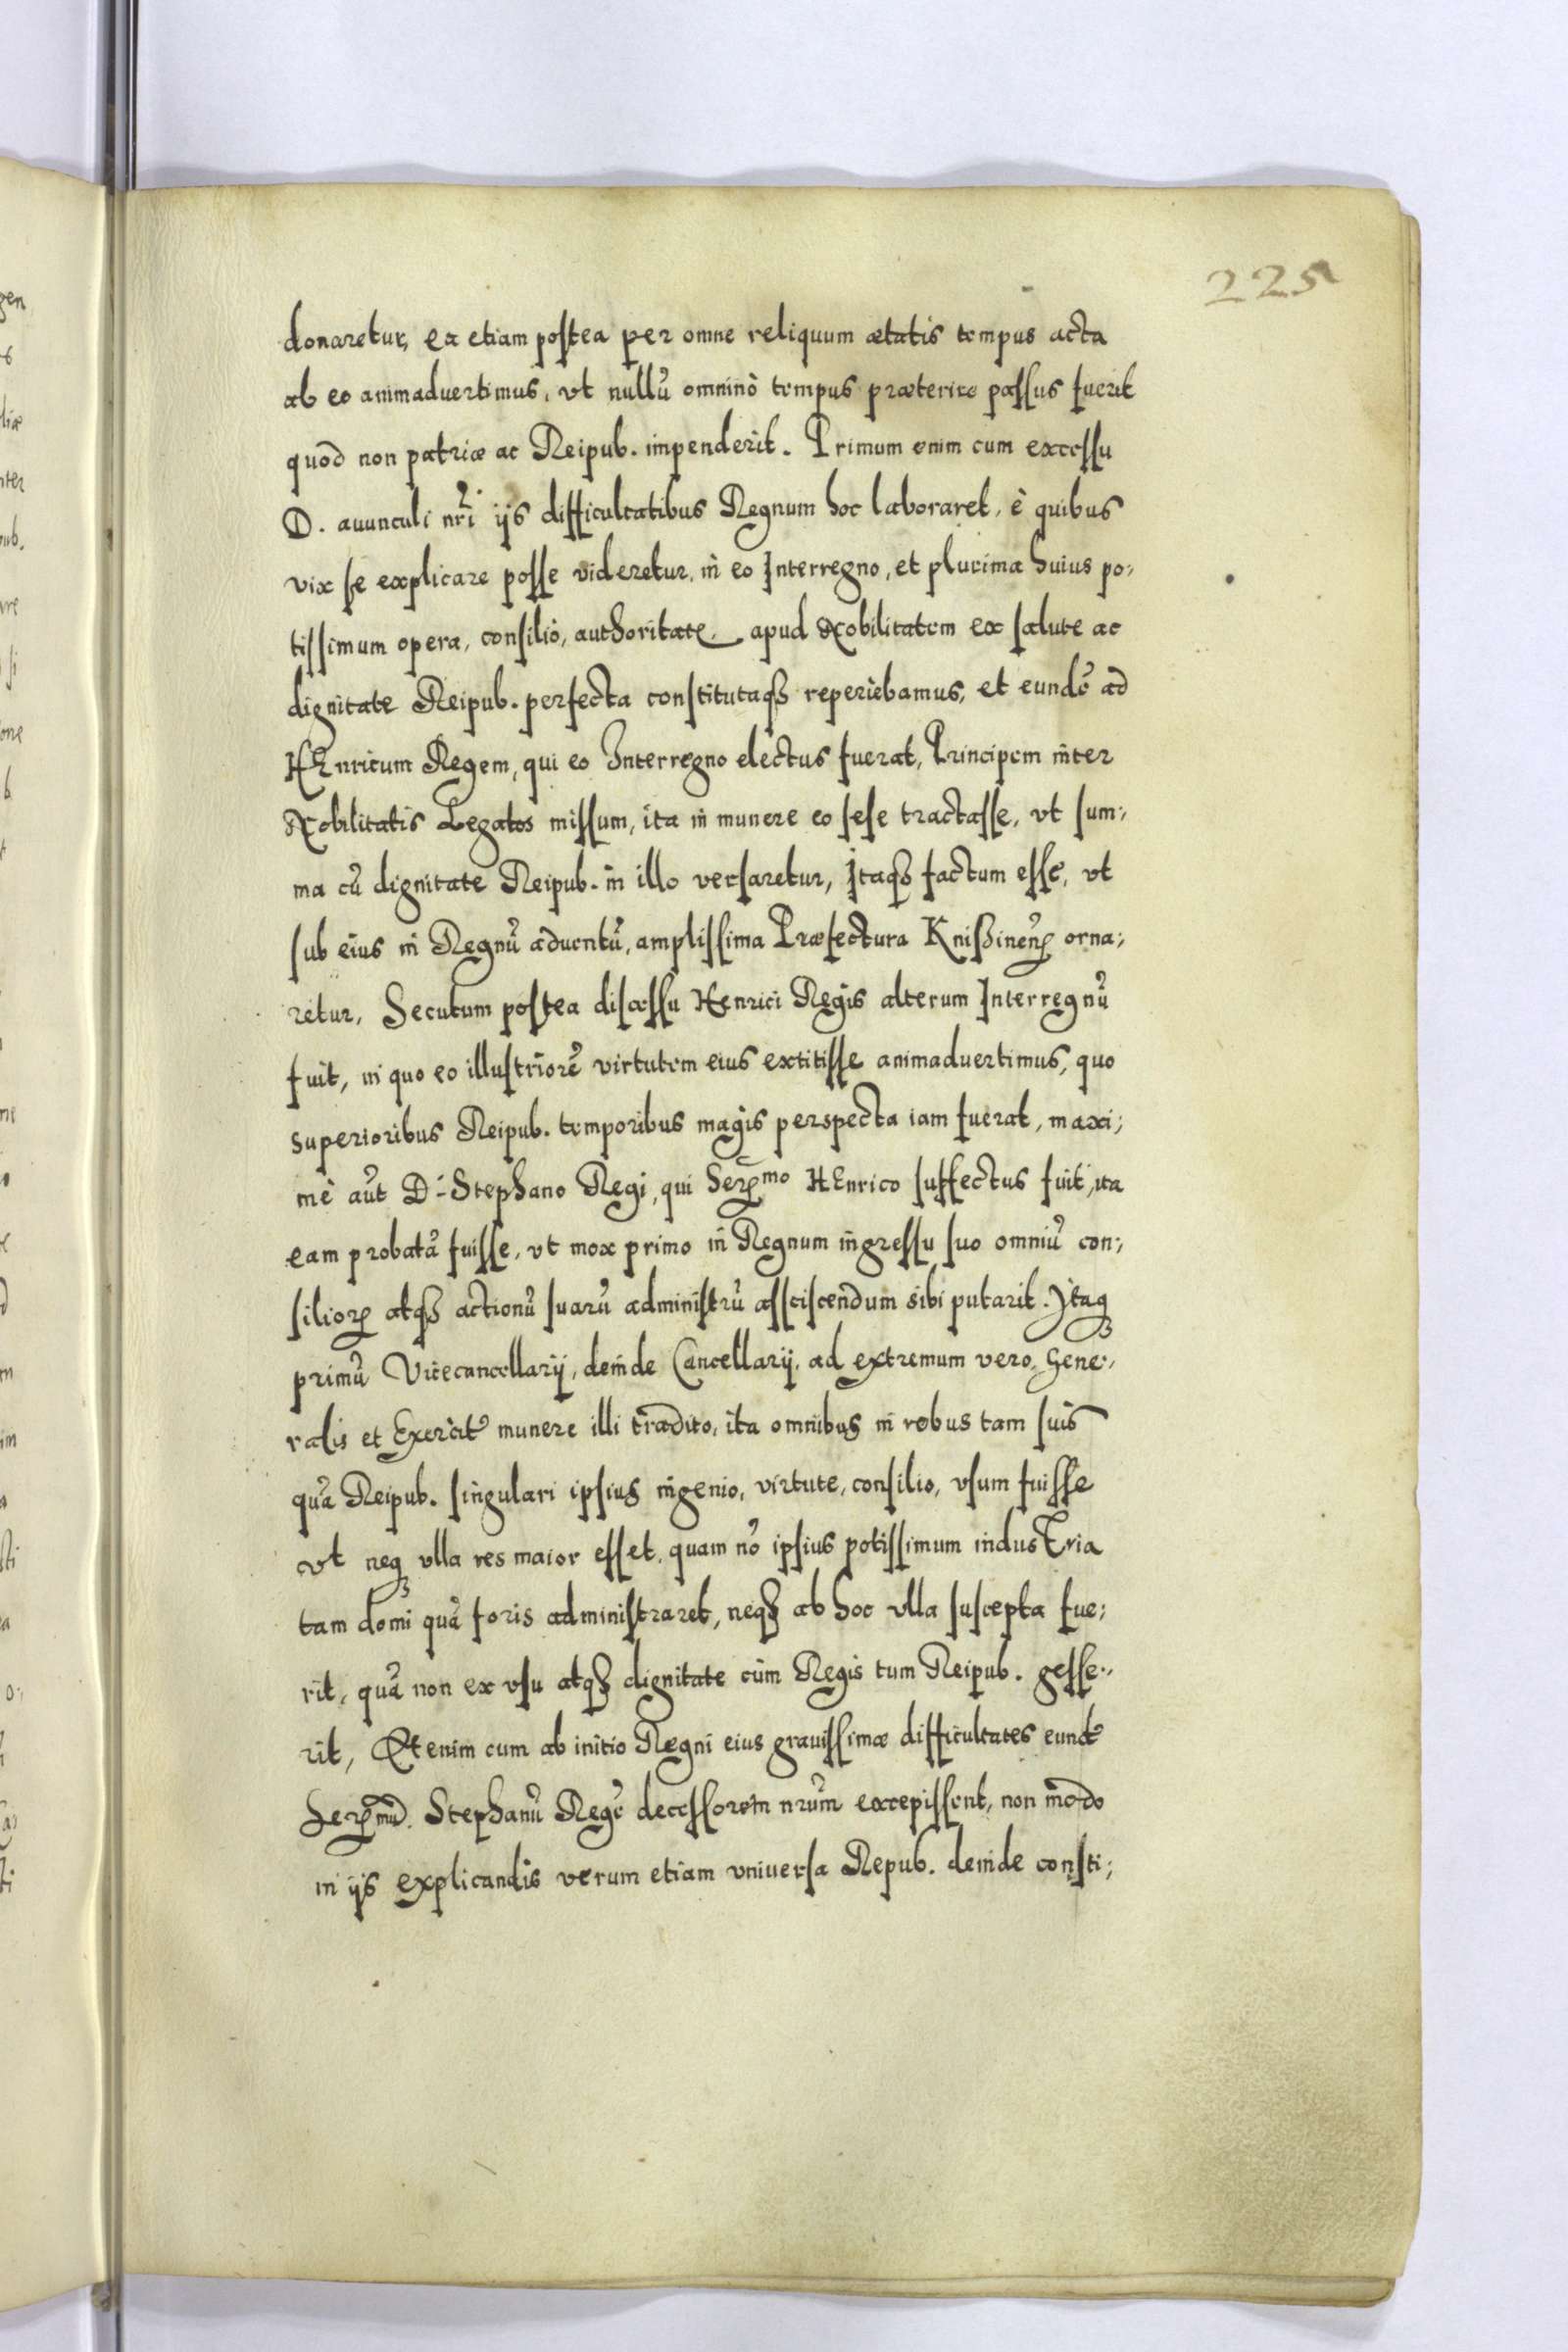 225
donaretur, ea etiam postea per omne reliquum ætatis tempus acta
ab eo animaduertimus, vt nullũ omninò tempus præterire passus fuerit
quod non patriæ ac Reipub. impenderit. Primum enim cum excessu
D. auunculi nr̃i ijs difficultatibus Regnum hoc laboraret, è quibus
vix se explicare posse videretur, in eo Interregno, et plurima huius po;
tissimum opera, consilio, authoritate apud Nobilitatem ex salute ac
dignitate Reipub. perfecta constitutaqꝫ reperiebamus, et eundẽ ad
HEnricum Regem, qui eo Interregno electus fuerat, Principem inter
Nobilitatis Legatos missum, ita in munere eo sese tractasse, vt sum;
ma cũ dignitate Reipub. in illo versaretur, Itaqꝫ factum esse, vt
sub eius in Regnũ aduentũ, amplissima Præfectura Knißinenꝭ orna;
retur, Secutum postea discessu Henrici Regis alterum Interregnũ
fuit, in quo eo illustriorẽ virtutem eius extitisse animaduertimus, quo
superioribus Reipub. temporibus magis perspecta iam fuerat, maxi;
mè aũt D. Stephano Regi, qui Serꝭmo HEnrico suffectus fuit, ita
eam probatã fuisse, vt mox primo in Regnum ingressu suo omniũ con;
silioꝝ atqꝫ actionũ suarũ administrũ assciscendum sibi putarit. Itaqꝫ
primũ Vicecancellarij, deinde Cancellarij, ad extremum vero, Gene;
ralis et Exercitꝰ munere illi tradito, ita omnibus in rebus tam suis
quã Reipub. singulari ipsius ingenio, virtute, consilio, vsum fuisse
vt neqꝫ vlla res maior esset, quam nõ ipsius potissimum industria
tam domi quã foris administraret, neqꝫ ab hoc vlla suscepta fue;
rit, quã non ex vsu atqꝫ dignitate cùm Regis tum Reipub. gesse;
rit, Etenim cum ab initio Regni eius grauissimæ difficultates eundẽ
Serꝭmũ. Stephanũ Regẽ decessorem nr̃um excepissent, non modo
in ijs explicandis verum etiam vniuersa Repub. deinde consti;